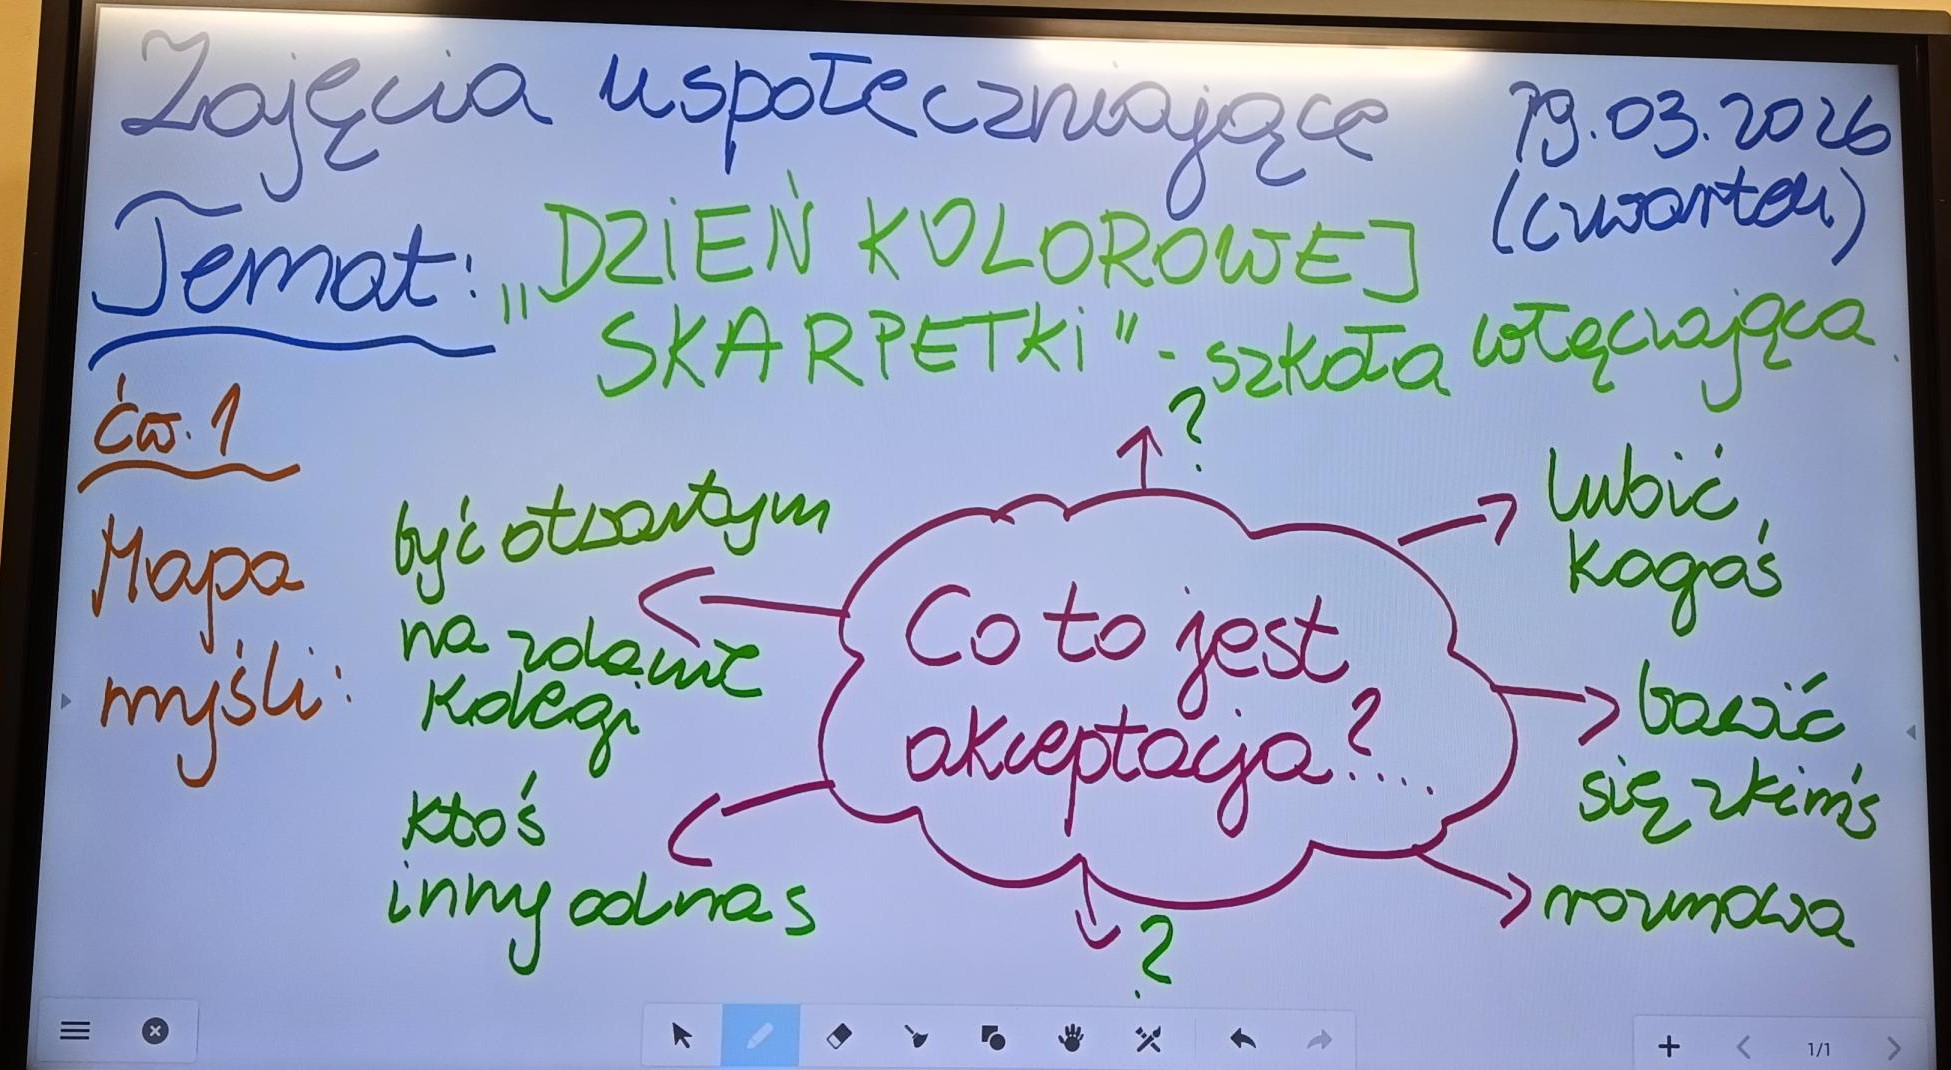 Zajęcia uspołeczniające 19.03.2026
(czwartek)
Temat: „DZIEŃ KOLOROWEJ
SKARPETKI" - szkoła włączająca.
ćw. 1
Mapa
myśli:
być otwartym
na zdanie
kolegi
ktoś
inny od nas
?
Co to jest
akceptacja?....
?
lubić
kogoś
bawić
się z kimś
rozmowa
1/1